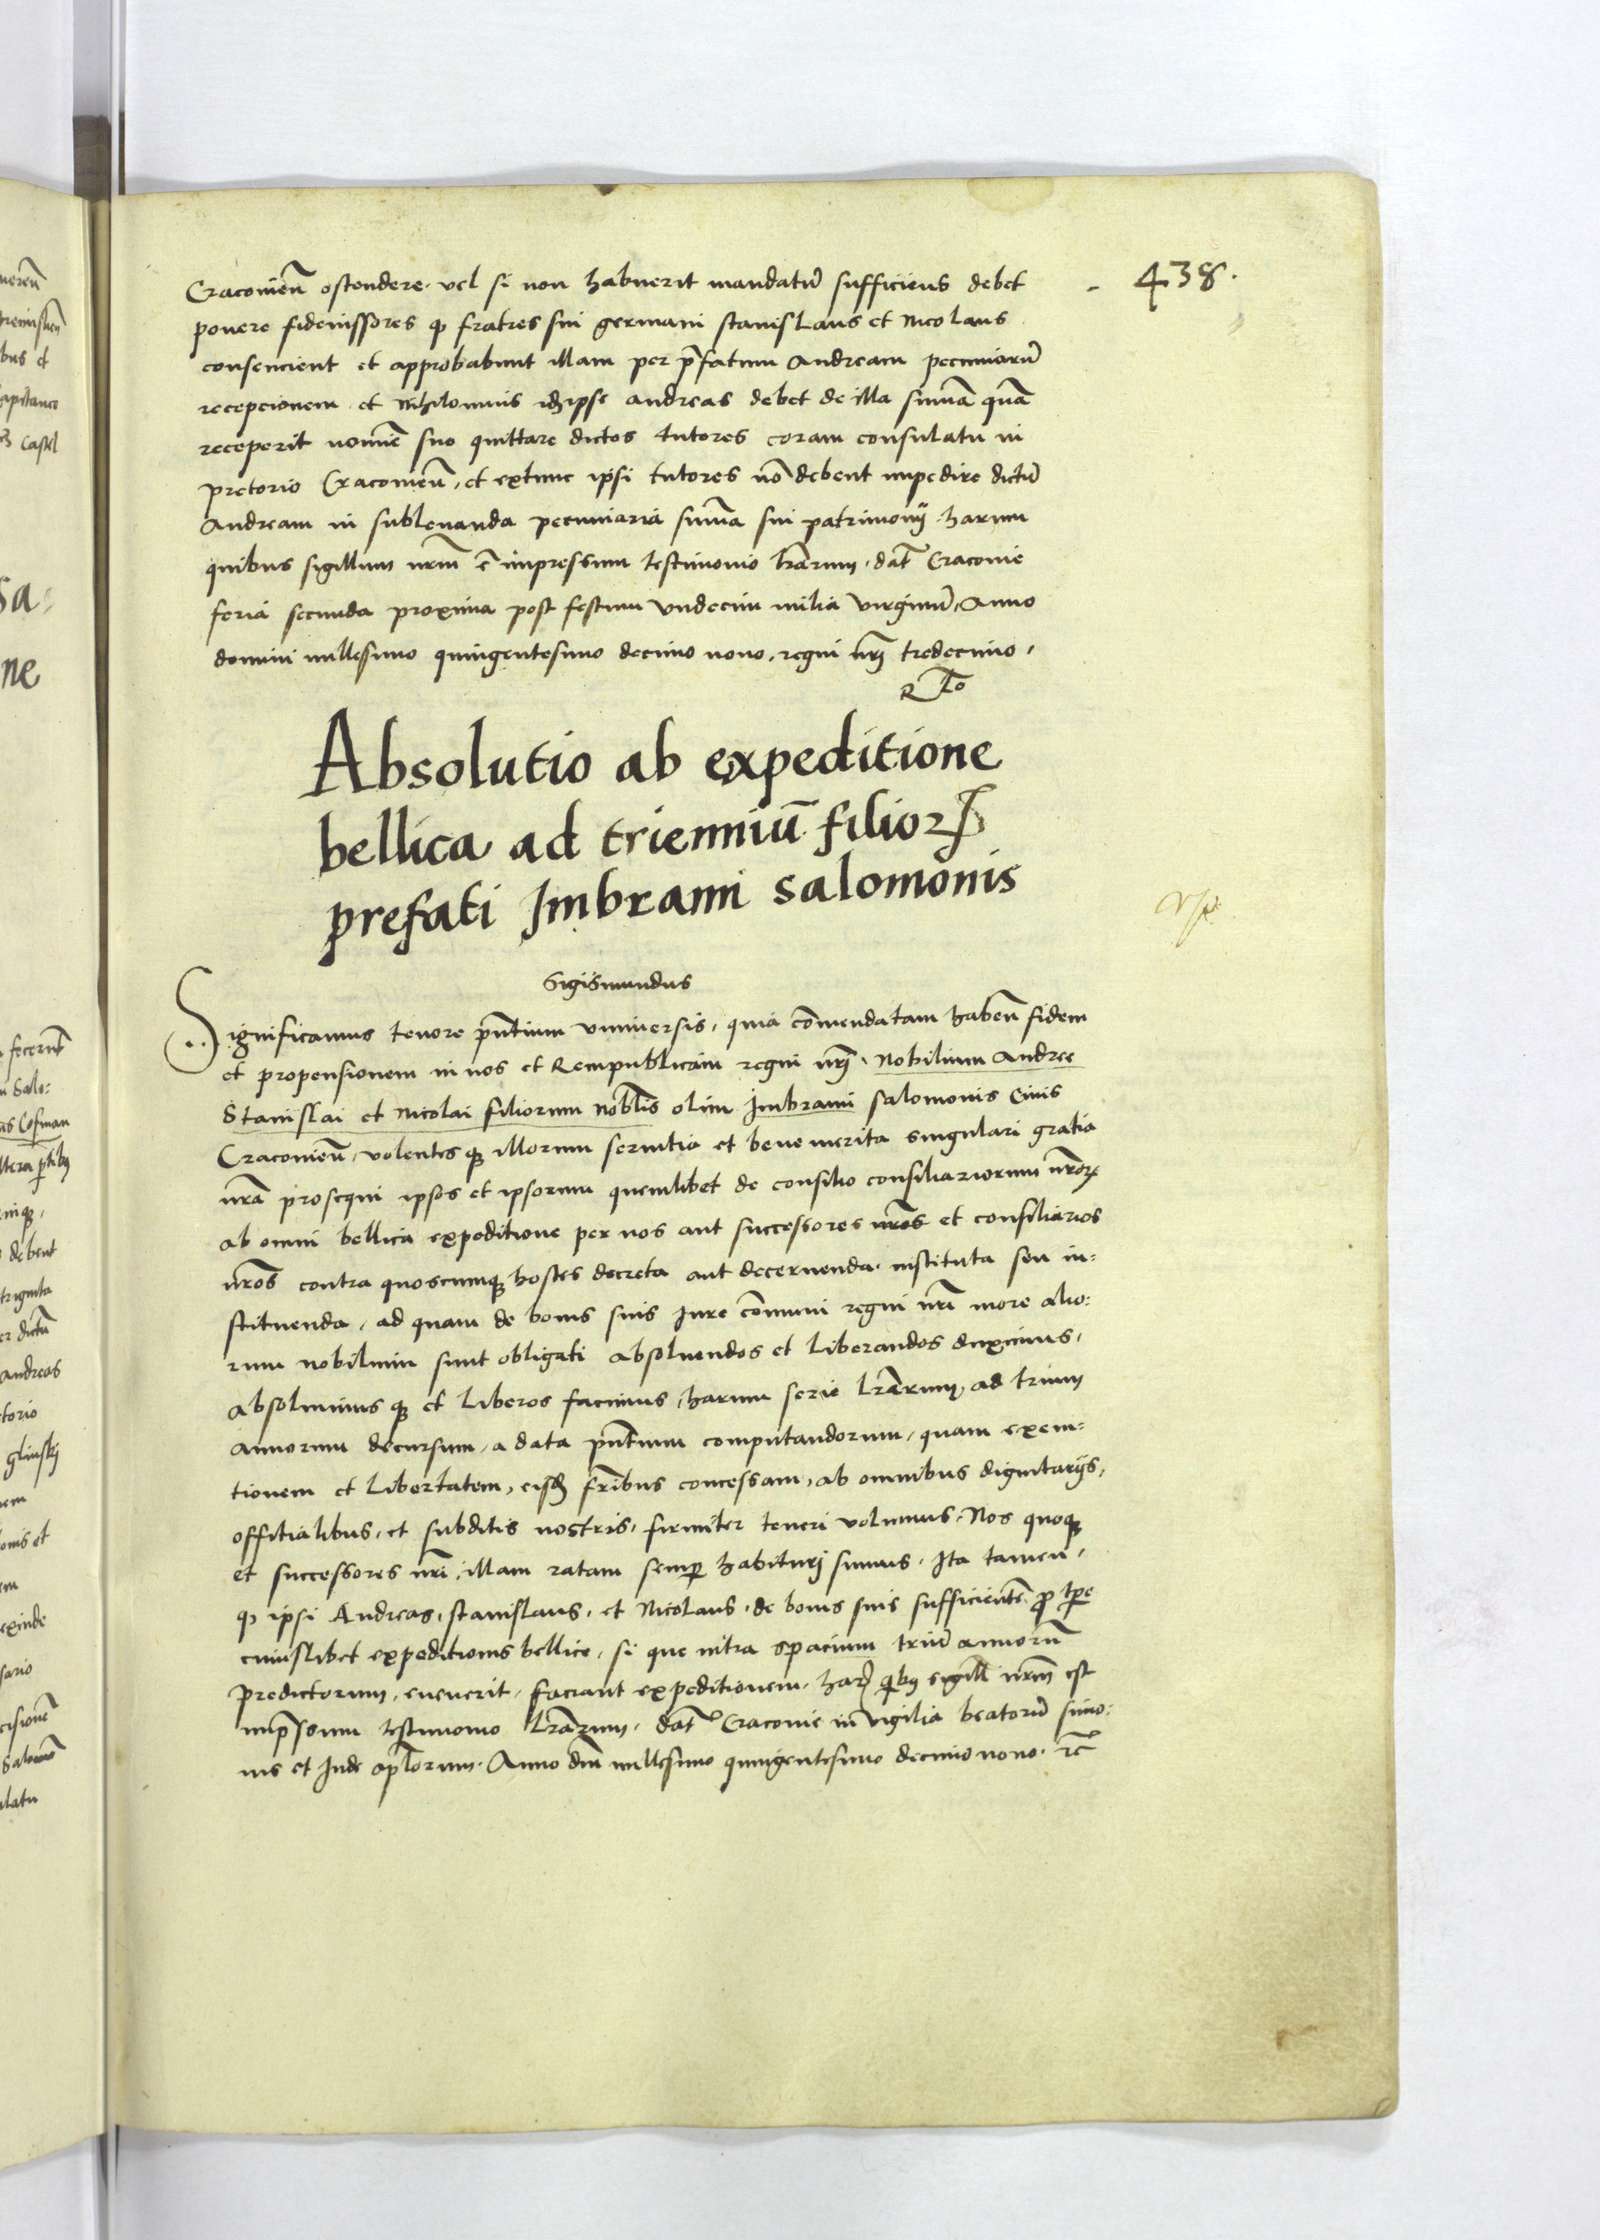 438.
Cracovien̄ ostendere. vel si non habuerit mandatū sufficiens debet
ponere fideiussores ꝙ fratres sui germani Stanislaus et Nicolaus
consencient et approbabunt illam per p̄fatum Andream pecuniarū
recepcionem et Nihilominus idipse Andreas debet de illa sum̄a quā
receperit nomīe suo quittare dictos tutores coram consulatu in
pretorio Cracovien̄, et extunc ipsi tutores nō debent impedire dictū
Andream in sublevanda pecuniaria sum̄a sui patrimonij. harum
quibus sigillum nr̄m ē impressum testimonio lr̄arum. dat̄ Cracovie
feria secunda proxima post festum Undecim milia virginū, Anno
domini millesimo quingentesimo decimo nono, regni nr̄j tredecimo,
Absolutio ab expeditione
bellica ad trienniū filioꝝ
prefati Imbrami Salomonis
Sigismundus
Significamus tenore pn̄tium universis, quia cōmendatam haben̄ fidem
et propensionem in nos et Rempublicam regni nr̄j. Nobilium Andree
Stanislai et Nicolai filiorum nobīlis olim Imbrami Salomonis Civis
Cracovien̄, volentes qꝫ illorum servitia et benemerita singulari gratia
nr̄a prosequi ipsos et ipsorum quemlibet de consilio consiliariorum nr̄oꝝ
ab omni bellica expeditione per nos aut successores nr̄os et consiliarios
nr̄os contra quoscumqꝫ hostes decreta aut decernenda. instituta seu in:
stituenda, ad quam de bonis suis Iure cōmuni regni nr̄i more alio:
rum nobilium sunt obligati absolvendos et liberandos duximus,
absolvimus qꝫ et liberos facimus, harum serie lr̄arum, ad trium
annorum decursum, a data pn̄tium computandorum, quam exem:
tionem et libertatem, eisd̄ fr̄ibus concessam, ab omnibus dignitarijs,
offitialibus, et subditis nostris, firmiter teneri volumus. Nos quoqꝫ
et successores nr̄i, illam ratam semꝑ habiturj sumus. Ita tamen,
ꝙ ipsi Andreas, Stanislaus, et Nicolaus. de bonis suis sufficientē ꝓ tꝑe
cuiuslibet expeditionis bellice, si que intra spacium triū annorū
predictorum, evenerit, faciant expeditionem. har̄ qͥbꝫ sigill̄ nr̄m est
imp̄ssum testimonio lr̄arum. dat̄ Cracovie in vigilia beatorū Simo:
nis et Iude apl̄orum. Anno dn̄i millesimo quingentesimo decimo nono. rē